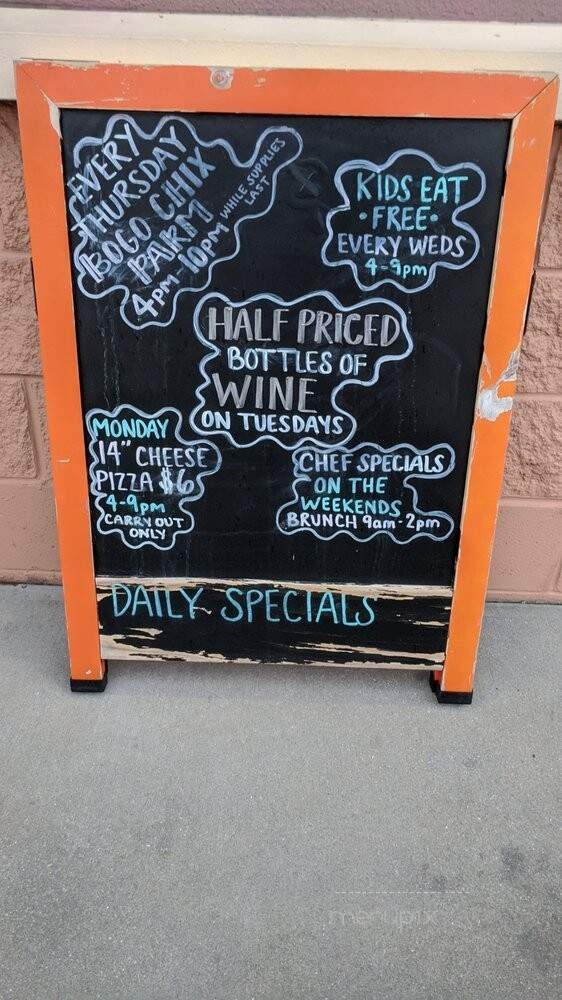 EVERY
THURSDAY
BOGO CHIX
PARM
4pm-10pm
WHILE SUPPLIES
LAST
KIDS EAT
• FREE •
EVERY WEDS
4-9pm
HALF PRICED
BOTTLES OF
WINE
ON TUESDAYS
MONDAY
14" CHEESE
PIZZA $6
4-9pm
CARRY OUT
ONLY
CHEF SPECIALS
ON THE
WEEKENDS
BRUNCH 9am-2pm
DAILY SPECIALS
menupix